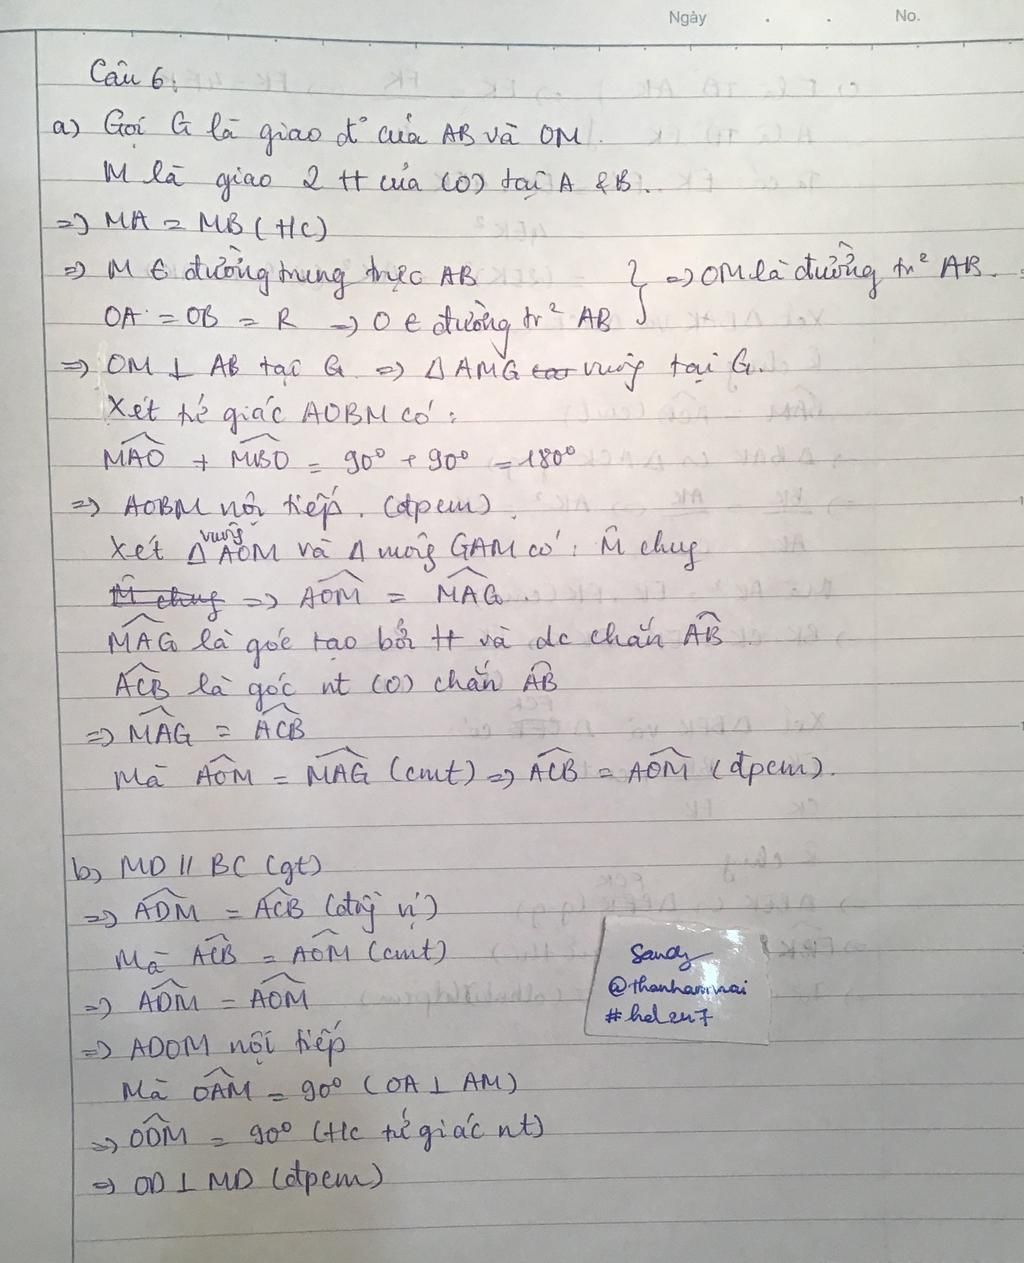 Ngày . . No.
Câu 6:
a) Gọi G là giao đ° của AB và OM.
M là giao 2 tt của (O) tại A & B.
=> MA = MB (t/c)
=> M ∈ đường trung trực AB
OA = OB = R => O ∈ đường tr² AB } => OM là đường tr² AB.
=> OM ⊥ AB tại G => Δ AMG vuông tại G.
Xét tứ giác AOBM có:
MAO + MBO = 90° + 90° = 180°
=> AOBM nội tiếp. (đpcm).
Xét Δ vuông AOM và Δ vuông GAM có: M̂ chung
M̂ chung => AOM = MAG.
MAG là góc tạo bởi tt và dc chắn AB
ACB là góc nt (O) chắn AB
=> MAG = ACB
Mà AOM = MAG (cmt) => ACB = AOM (đpcm).
b, MD // BC (gt)
=> ADM = ACB (đồng vị)
Mà ACB = AOM (cmt)
=> ADM = AOM
=> ADOM nội tiếp
Mà OAM = 90° (OA ⊥ AM)
=> ODM = 90° (t/c tứ giác nt)
=> OD ⊥ MD (đpcm)
Sandy
@thanhammai